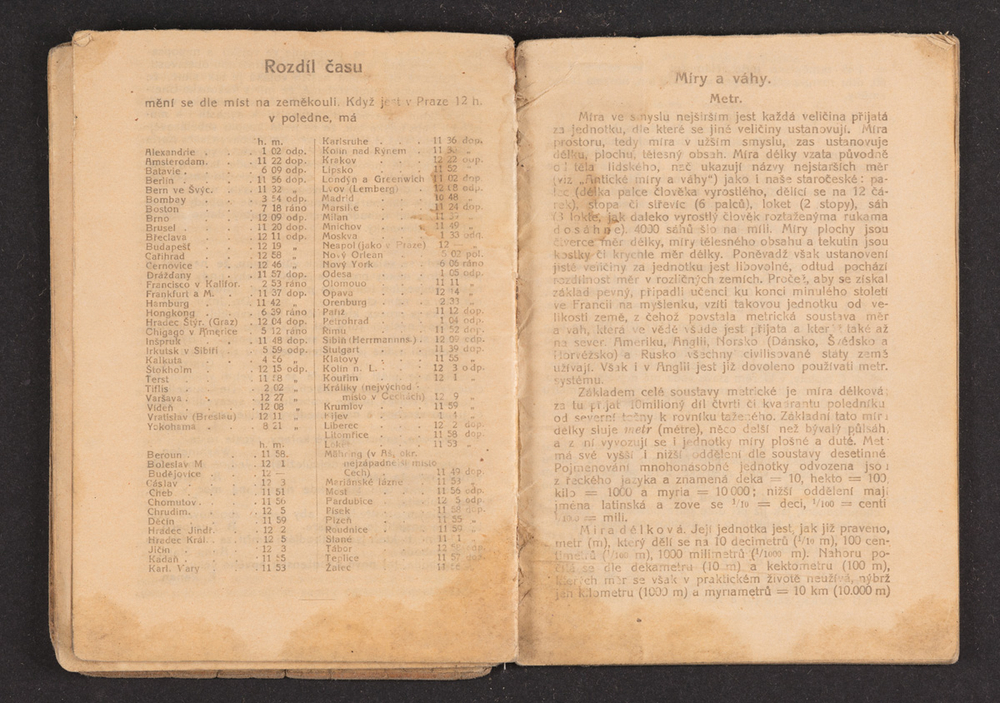 Rozdíl času
mění se dle míst na zeměkouli. Když jest v Praze 12 h.
v poledne, má
h. m.
Alexandrie . . . 1 02 odp.
Amsterodam. . . 11 22 dop.
Batavie . . . 6 09 odp.
Berlín . . . 11 56 dop.
Bern ve Švýc. . . 11 32 „
Bombay . . . 3 54 odp.
Boston . . . 7 18 ráno
Brno . . . 12 09 odp.
Brusel . . . 11 20 dop.
Břeclava . . . 12 11 odp.
Budapešť . . . 12 19 „
Cařihrad . . . 12 58 „
Černovice . . . 12 46 „
Drážďany . . . 11 57 dop.
Francisco v Kalifor. 2 53 ráno
Frankfurt a M. . . 11 37 dop.
Hamburg . . . 11 42 „
Hongkong . . . 6 39 ráno
Hradec Štyr. (Graz) . 12 04 dop.
Chigago v Americe . 5 12 ráno
Inšpruk . . . 11 48 dop.
Irkutsk v Sibiři . . 5 59 odp.
Kalkuta . . . 4 56 „
Štokholm . . . 12 15 odp.
Terst . . . 11 58 „
Tiflis . . . 2 02 „
Varšava . . . 12 27 „
Vídeň . . . 12 08 „
Vratislav (Breslau) . 12 11 „
Yokohama . . . 8 21 „
h. m.
Beroun . . . 11 58.
Boleslav M . . . 12 1
Budějovice . . . 12 —
Čáslav . . . 12 3
Cheb . . . 11 51
Chomutov . . . 11 56
Chrudim. . . . 12 5
Děčín . . . 11 59
Hradec Jindř. . . 12 2
Hradec Král . . . 12 5
Jičín . . . 12 3
Kadaň . . . 11 55
Karl. Vary . . . 11 53
Karlsruhe . . . 11 36 dop.
Kolín nad Rýnem . 11
Krakov . . . 12 22 odp.
Lipsko . . . 11 52 „
Londýn a Greenwich 11 02 dop
Lvov (Lemberg) . . 12 odp.
Madrid . . . 10 48 „
Marsilie . . . 11 24 dop.
Milan . . . 11
Mnichov . . . 11 49 „
Moskva . . . 1 33 odp.
Neapol (jako v Praze) 12 — „
Nový Orlean . . 5 02 pol.
Nový York . . . 6 06 ráno
Odesa . . . 1 05 odp.
Olomouc . . . 11 11 „
Opava . . . 12 14 „
Orenburg . . . 2 33 „
Paříž . . . 11 12 dop.
Petrohrad . . . 1 04 odp.
Římu . . . 11 52 dop.
Sibiň (Herrmannns.) . 12 09 odp.
Stutgart . . . 11 39 dop.
Klatovy . . . 11 55 „
Kolín n. L. . . . 12 3 odp.
Kouřim . . . 12 1 „
Králíky (nejvýchod
místo v Čechách) 12 9 „
Krumlov . . . 11 59 „
Kyjev . . . 1 1 „
Liberec . . . 12 2 dop
Litomřice . . . 11 58 dop.
11 53 „
(v Aš. okr.
nejzápadně místo
Čech) . . . 11 49 dop.
Mariánské lázně 11 53 „
Most . . . 11 56 odp.
Pardubice . . . 12 5 odp
Písek . . . 11 58 dop
Plzeň . . . 11 55 „
Roudnice . . . 11 59 „
Slané . . . 11
Tábor . . . 12
Teplice . . . 11 57
Žatec . . . 11
Míry a váhy.
Metr.
Míra ve smyslu nejširším jest každá veličina přijatá
za jednotku, dle které se jiné veličiny ustanovují. Míra
prostoru, tedy míra v užším smyslu, zas ustanovuje
délku, plochu, tělesný obsah. Míra délky vzata původně
od těla lidského, neč ukazují názvy nejstarších měr
(viz „Antické míry a váhy“) jako i naše staročeské: pa-
lec (délka palce člověka vyrostlého, dělící se na 12 čá-
rek), stopa či střevíc (6 palců), loket (2 stopy), sáh
(3 lokte, jak daleko vyrostlý člověk roztaženýma rukama
dosáhne). 4000 sáhů šlo na míli. Míry plochy jsou
čtverce měr délky, míry tělesného obsahu a tekutin jsou
kostky či krychle měr délky. Poněvadž však ustanovení
jisté veličiny za jednotku jest libovolné, odtud pochází
rozdílnost měr v rozličných zemích. Pročež, aby se získal
základ pevný, připadli učenci ku konci minulého století
ve Francii na myšlenku, vzíti takovou jednotku od ve-
likosti země, z čehož povstala metrická soustava měr
a váh, která ve vědě všude jest přijata a kterou také až
na sever. Ameriku, Anglii, Norsko (Dánsko, Švédsko a
Horvéžsko) a Rusko všechny civilisované státy země
užívají. Však i v Anglii jest již dovoleno používati metr.
systému.
Základem celé soustavy metrické je míra délková:
za tu přijat 10milioný díl čtvrti či kvadrantu poledníku
od severní točny k rovníku taženého. Základní tato míra
délky sluje metr (métre), něco délší než bývalý půlsáh,
a z ní vyvozují se i jednotky míry plošné a duté. Metr
má své vyšší i nižší oddělení dle soustavy desetinné.
Pojmenování mnohonásobné jednotky odvozena jsou
z řeckého jazyka a znamená deka = 10, hekto = 100,
kilo = 1000 a myria = 10 000; nižší oddělení mají
jména latinská a zove se 1/10 = deci, 1/100 = centi
1/1000 = mili.
Míra délková. Její jednotka jest, jak již praveno,
metr (m), který dělí se na 10 decimetrů (1/10 m), 100 cen-
timetrů (1/100 m), 1000 milimetrů (1/1000 m). Nahoru po-
čítá se dle dekametru (10 m) a kektometru (100 m),
kterých měr se však v praktickém životě neužívá, nýbrž
jen kilometru (1000 m) a myriametrů = 10 km (10.000 m)